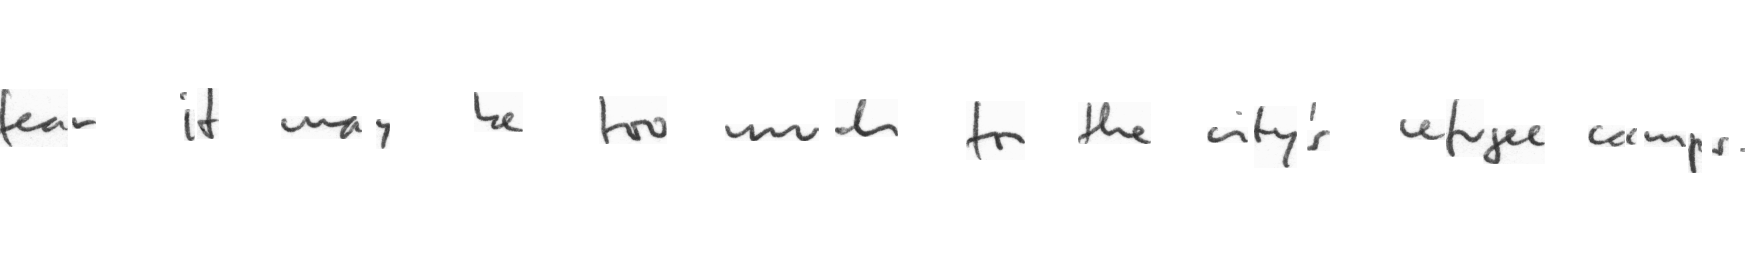 fear it may be too much for the city's refugee camps.